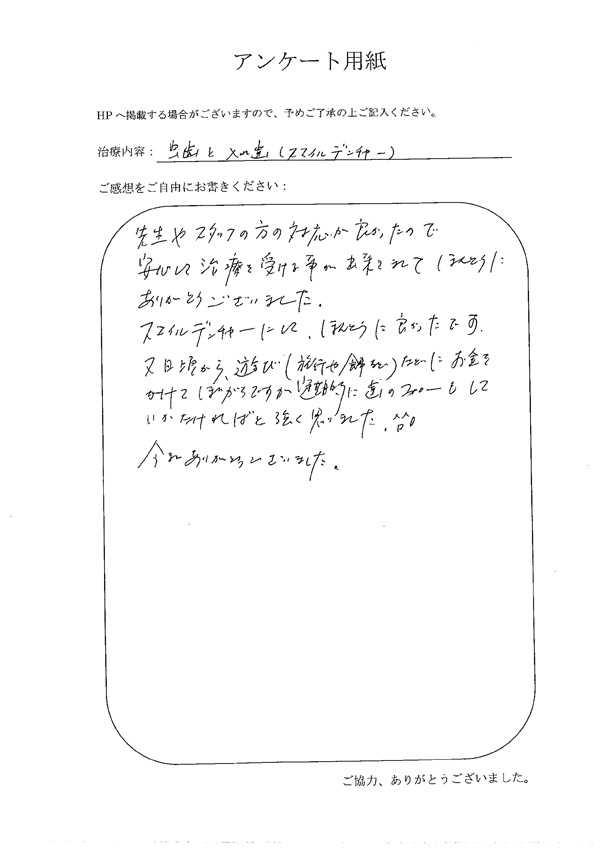 アンケート用紙
HPへ掲載する場合がございますので、予めご了承の上ご記入ください。
治療内容: 虫歯と入れ歯(スマイルデンチャー)
ご感想をご自由にお書きください:
先生やスタッフの方の対応が良かったので
安心して治療を受ける事が出来まして ほんとうに
ありがとうございました。
スマイルデンチャーにして、ほんとうに良かったです。
又日頃から、遊び(旅行や)などにお金を
かけてばかりですが に歯のフォローもして
いかなければと強く思いました。
ありがとうございました。
ご協力、ありがとうございました。